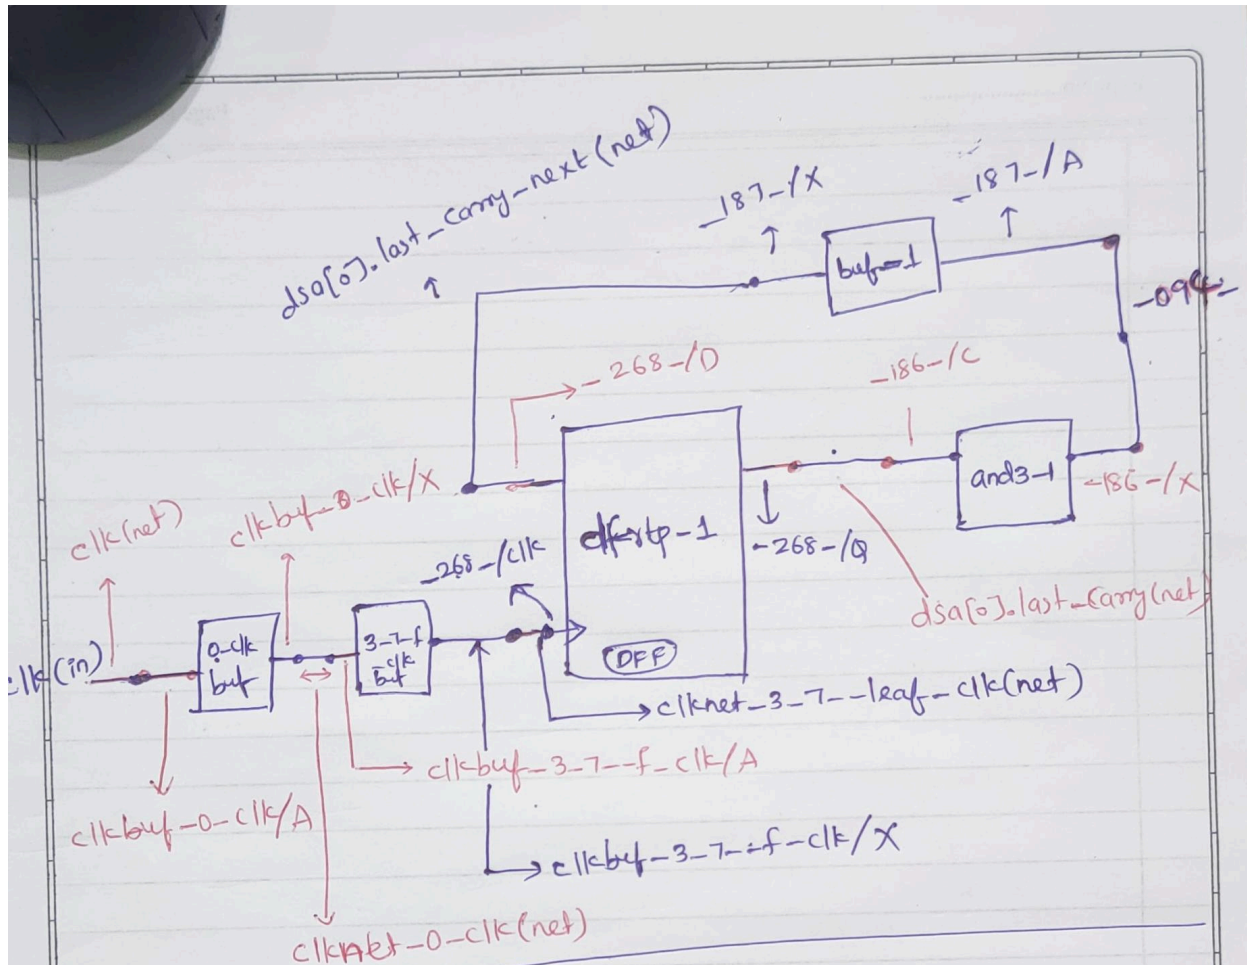 dsa[0].last_carry_next (net)
_187_/X
_187_/A
buf_1
_094_
_268_/D
_186_/C
and3_1
_186_/X
clk(net)
clkbuf_0_clk/X
_268_/clk
dfrtp_1
_268_/Q
dsa[0].last_carry(net)
clk(in)
0-clk
buf
3-7-f
clk
buf
DFF
clknet_3_7__leaf_clk(net)
clkbuf_3_7__f_clk/A
clkbuf_0_clk/A
clkbuf_3_7__f_clk/X
clknet_0_clk(net)